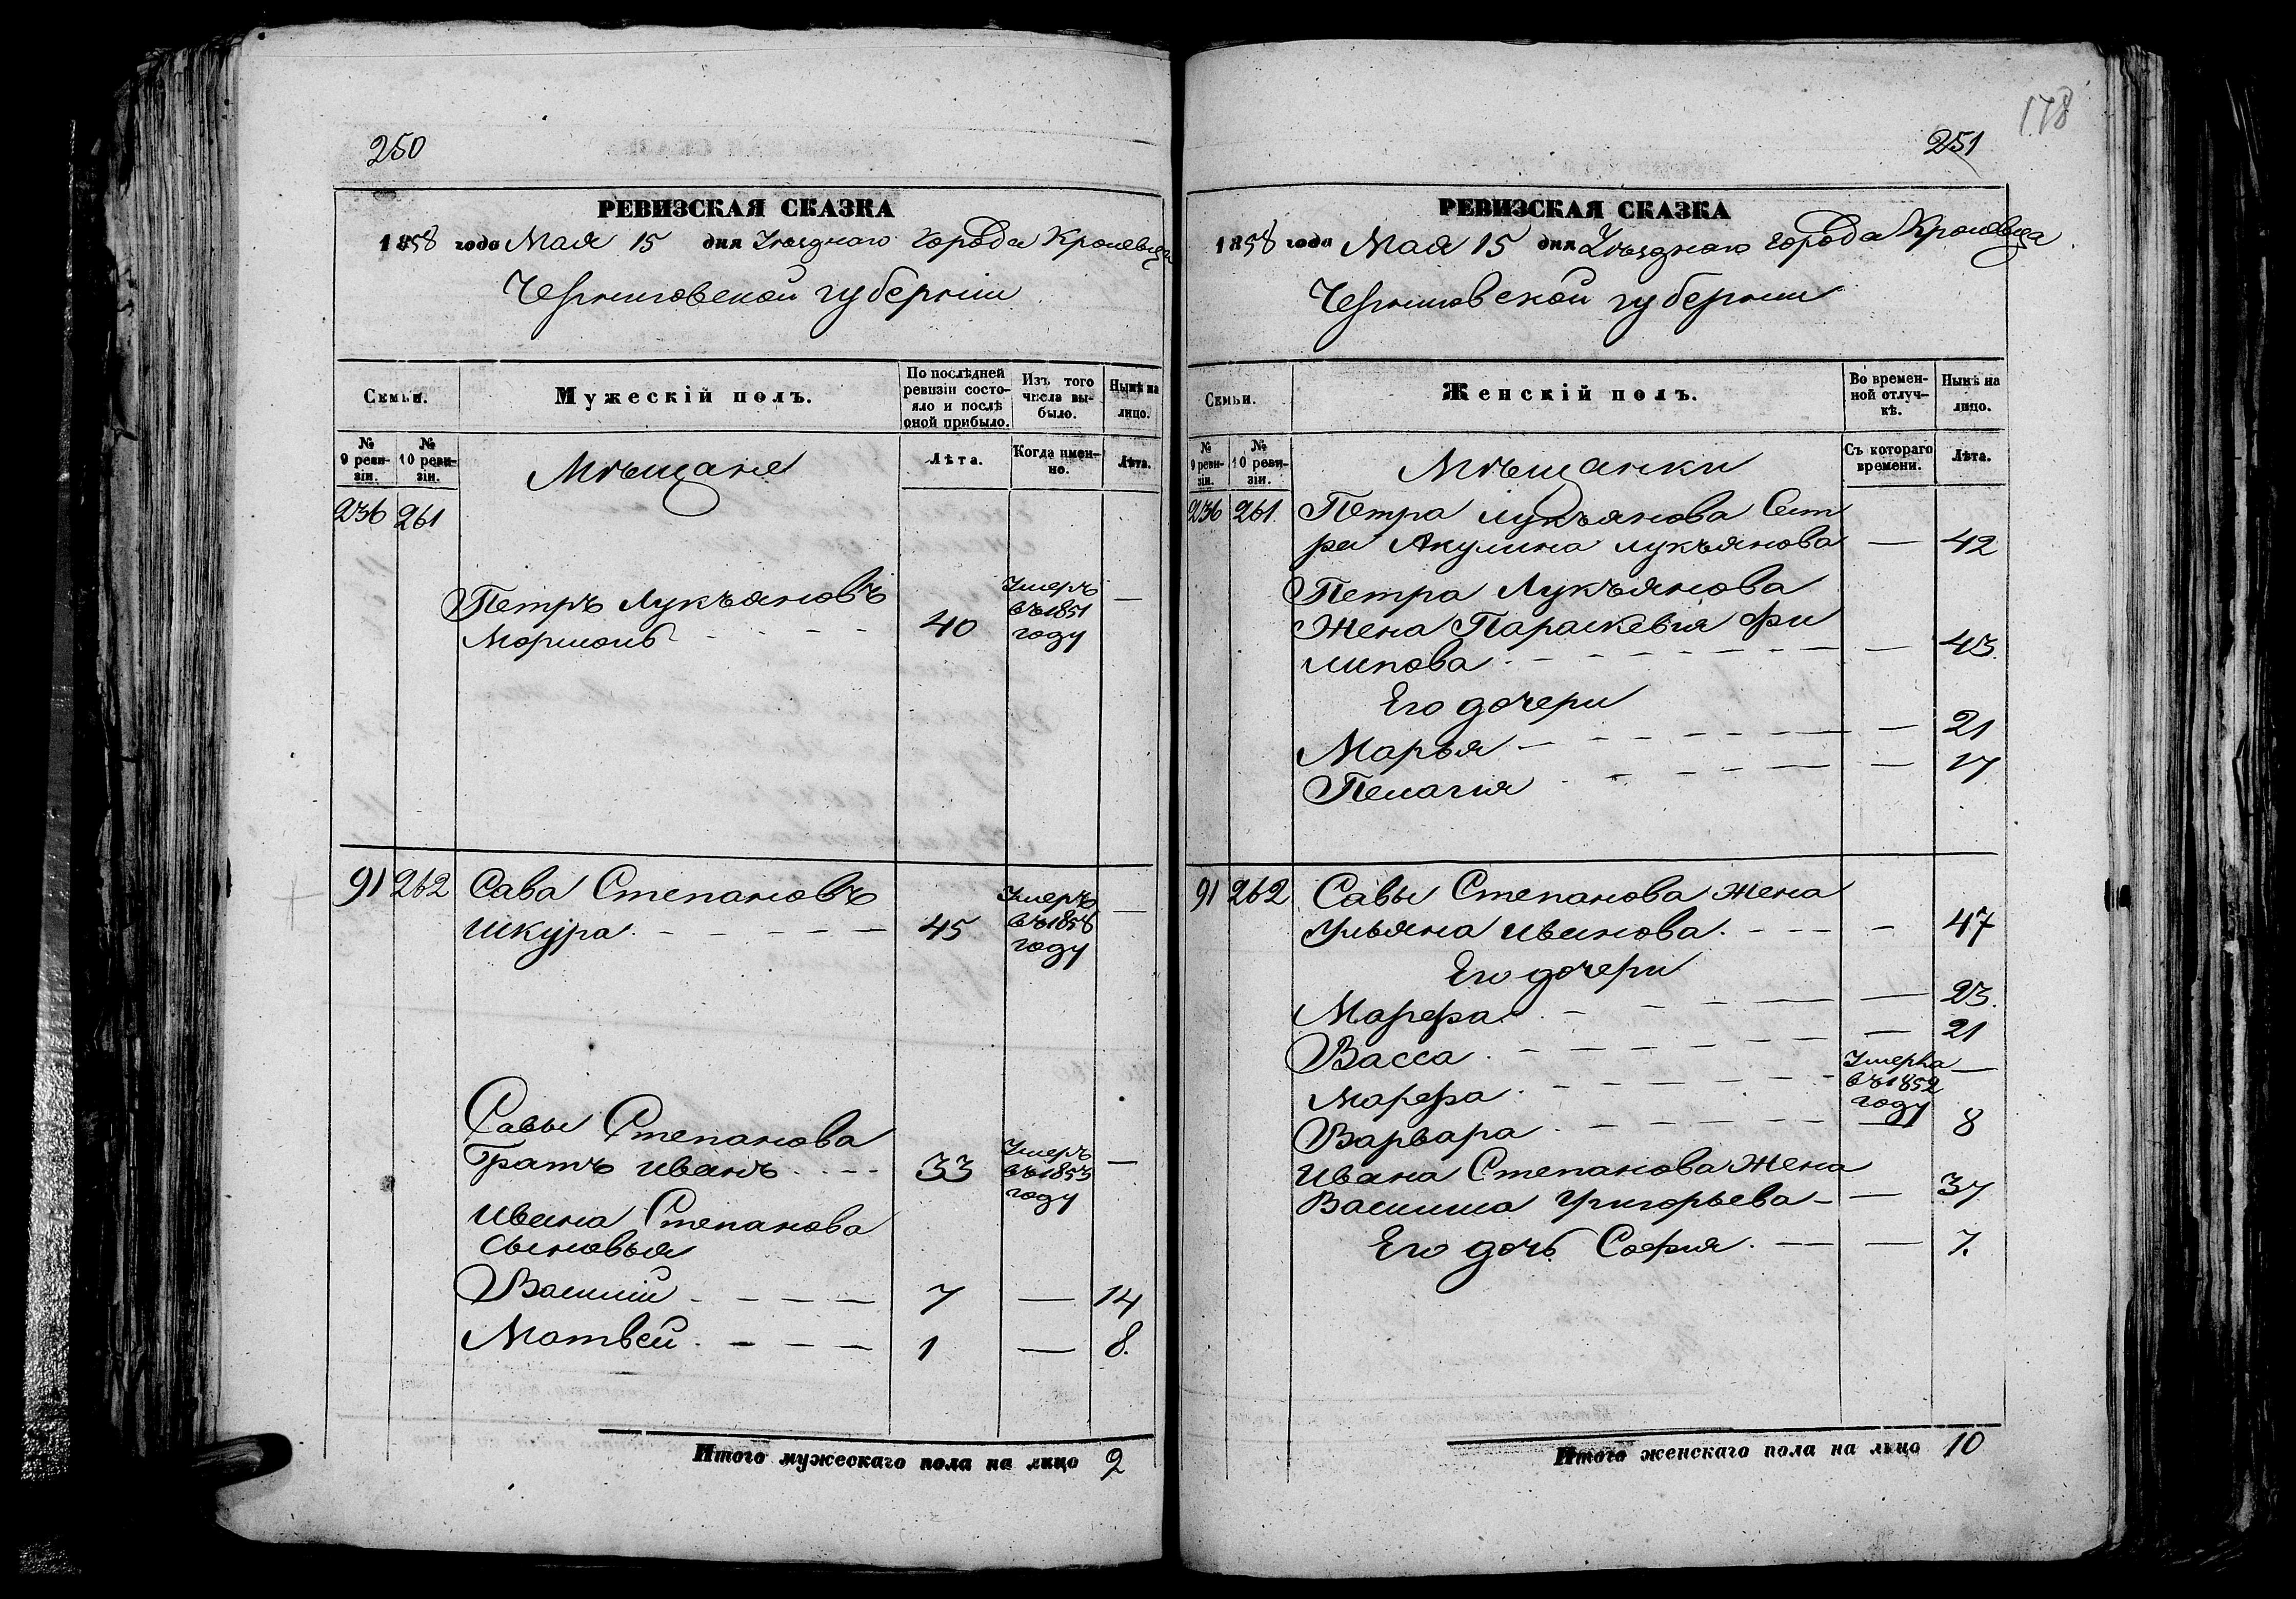 250
РЕВИЗСКАЯ СКАЗКА
1858 года Мая 15 дня Уѣзднаго города Кролевца
Черниговской губерніи
Семьи.
Мужескій полъ.
По послѣдней ревизіи состояло и послѣ оной прибыло.
Изъ того числа выбыло.
Нынѣ на лицо.
№ 9 ревизіи.
№ 10 ревизіи.
Мѣщане
Лѣта.
Когда именно.
Лѣта.
236 261
Петръ Лукъяновъ
40 Умеръ въ 1851 году —
Сава Степановъ
91 262
Шкура 45 Умеръ въ 1858 году —
Савы Степанова
Братъ Иванъ 33 Умеръ въ 1853 году —
Ивана Степанова
Сыновья
Василій 7 — 14
Матвей 1 — 8.
Итого мужескаго пола на лицо 2
178
251
РЕВИЗСКАЯ СКАЗКА
1858 года Мая 15 дня Уѣзднаго города Кролевца
Черниговской губерніи
Семьи.
Женскій полъ.
Во временной отлучкѣ.
Нынѣ на лицо.
№ 9 ревизіи.
№ 10 ревизіи.
Мѣщанки
Съ котораго времени.
Лѣта.
236 261. Петра Лукъянова Сест
ра Акулина Лукъянова — 42
Петра Лукъянова
Жена Параскевія Фи
липова — 43.
Его дочери
Марья — 21
Пелагия — 17
91 262 Савы Степанова жена
Ульяна Иванова. — 47
Его дочери
Марфа — 23.
Васса — 21
Марфа Умерла въ 1852 году —
Варвара — 8
Ивана Степанова Жена
Васииса Григорьева — 37
Его дочь София. — 7.
Итого женскаго пола на лицо 10